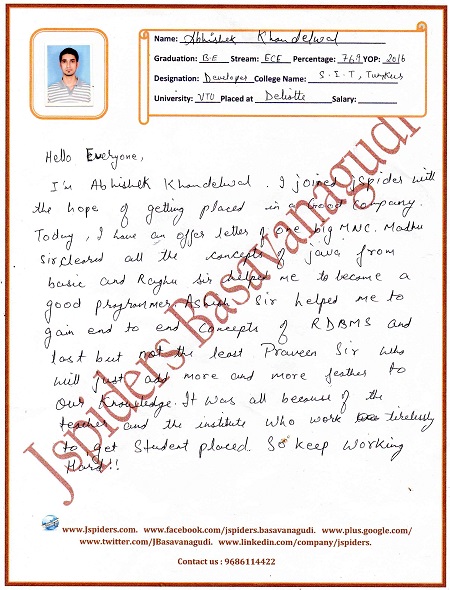 Name: Abhishek Khandelwal
Graduation: B.E Stream: ECE Percentage: 74.9 YOP: 2016
Designation: Developer College Name: S.I.T, Tumkur
University: VTU Placed at Deloitte Salary:
Hello Everyone,
I'm Abhishek Khandelwal. I joined jspider with
the hope of getting placed in a Good Company.
Today, I have an offer letter of one big MNC. Madhu
Sir cleared all the concepts of java from
basic and Raghu sir helped me to become a
good programmer. Ashish Sir helped me to
gain end to end concepts of RDBMS and
last but not the least Praveen Sir who
will just add more and more feather to
our knowledge. It was all because of the
teacher and the institute who work tirelessly
to get Student placed. So keep working
Hard!!
Jspiders Basavanagudi
www.Jspiders.com. www.facebook.com/jspiders.basavanagudi. www.plus.google.com/
www.twitter.com/JBasavanagudi. www.linkedin.com/company/jspiders.
Contact us : 9686114422